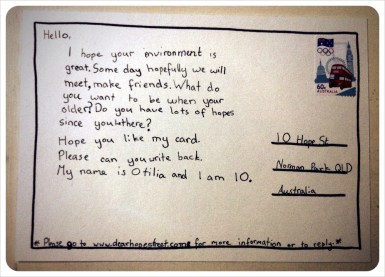 Hello,
I hope your invironment is
great. Some day hopefully we will
meet, make friends. What do
you want to be when your
older? Do you have lots of hopes
since you there?
Hope you like my card.
Please can you write back
My name is Otilia and I am 10.
60c
AUSTRALIA
10 Hope St
Norman Park QLD
Australia
* Please go to www.dearhopestreet.com for more information or to reply. *